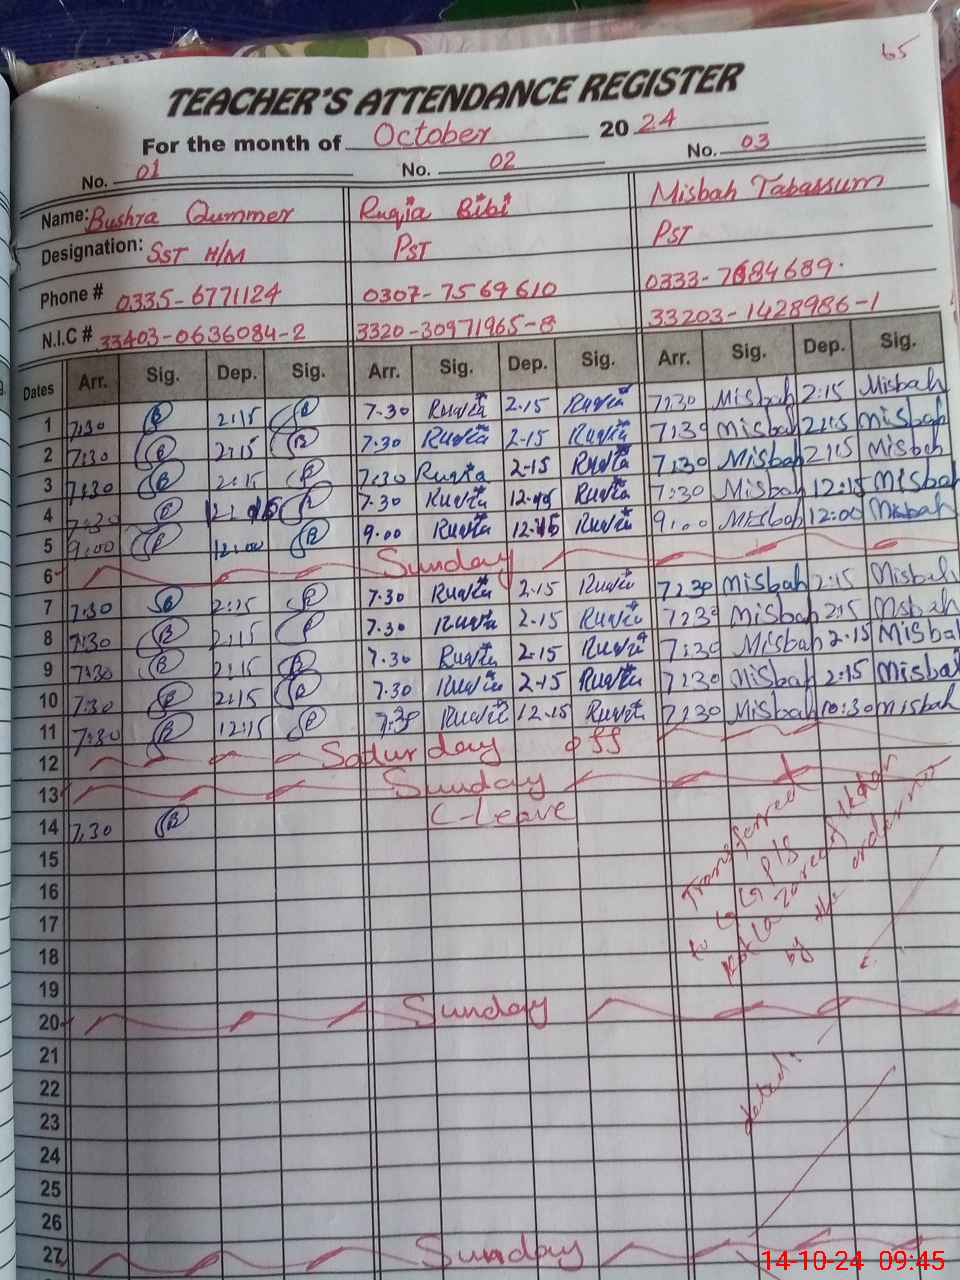 65
TEACHER'S ATTENDANCE REGISTER
For the month of October 2024
No. 01 No. 02 No. 03
Name: Bushra Qummer Ruqia Bibi Misbah Tabassum
Designation: SST H/M PST PST
Phone # 0335-6771124 0307-7569610 0333-7684689.
N.I.C # 33403-0636084-2 3320-30971965-8 33203-1428986-1
Dates Arr. Sig. Dep. Sig. Arr. Sig. Dep. Sig. Arr. Sig. Dep. Sig.
1 7:30 B 2:15 7.30 2.15 7:30 Misbah 2:15 Misbah
2 7:30 B 2:15 B 7.30 2-15 7:30 Misbah 2:15 Misbah
3 7:30 B 2:15 7:30 Ruqia 2-15 7:30 Misbah 2:15 Misbah
4 7:30 7.30 7:30 Misbah 12:15 Misbah
5 9:00 12:00 B 9.00 12.15 9:00 Misbah 12:00 Misbah
6 Sunday
7 7:30 B 2:15 7.30 2.15 7:30 Misbah 2:15 Misbah
8 7:30 B 2:15 7.30 2.15 7:30 Misbah 2:15 Misbah
9 7:30 B 2:15 B 7.30 2.15 7:30 Misbah 2.15 Misbah
10 7:30 2:15 7.30 2.15 7:30 Misbah 2:15 Misbah
11 7:30 B 12:15 7.30 12.15 7:30 Misbah 10:30 Misbah
12 Sadurday off
13 Sunday
14 7:30 B C-leave
Transferred
to G G P/S
by the order no
15
16
17
18
19
20 Sunday
21
22
dated:
23
24
25
26
27 Sunday
14-10-24 09:45